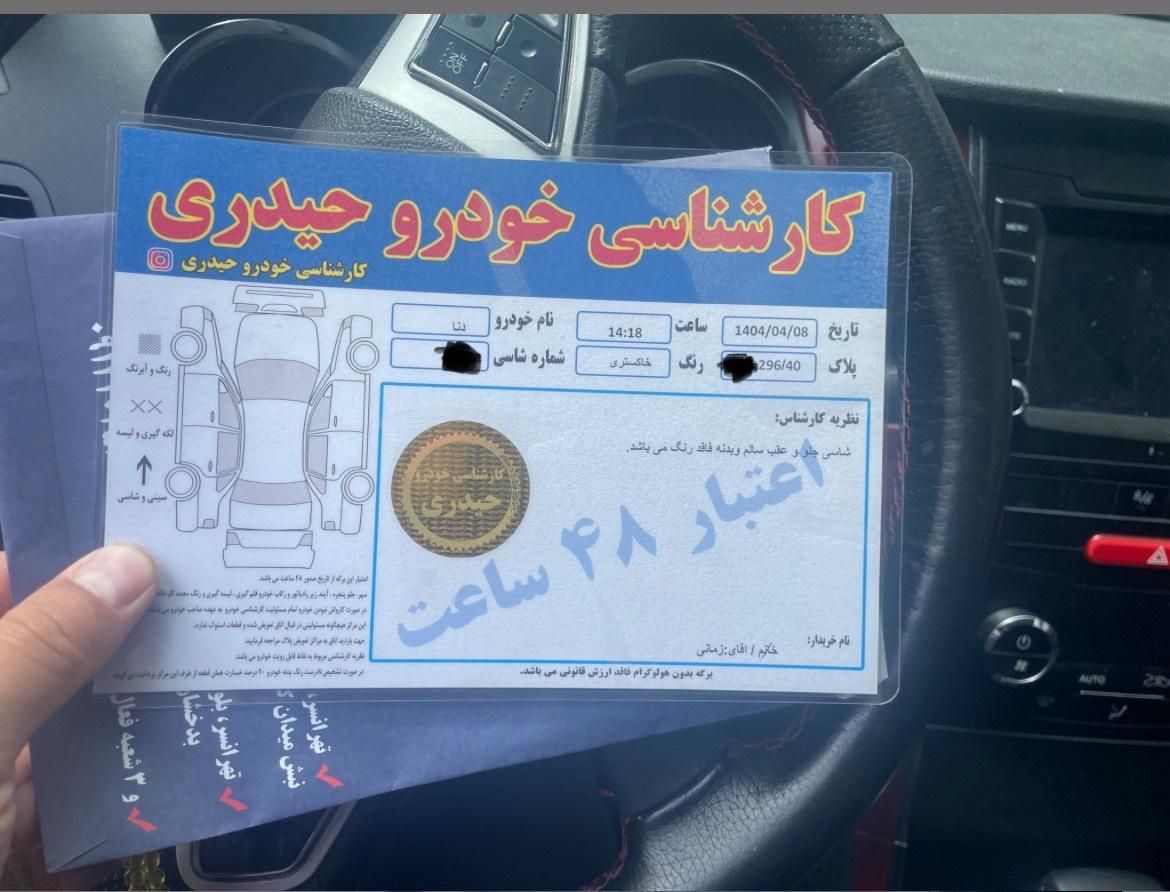 کارشناسی خودرو حیدری
کارشناسی خودرو حیدری
تاریخ 1404/04/08 ساعت 14:18 نام خودرو دنا
پلاک 296/40 رنگ خاکستری شماره شاسی
نظریه کارشناس:
شاسی جلو و عقب سالم وبدنه فاقد رنگ می باشد.
اعتبار ۴۸ ساعت
کارشناسی خودرو
حیدری
رنگ و آبرنگ
لکه گیری و لیسه
سینی و شاسی
نام خریدار:
خانم / اقای:زمانی
برگه بدون هولوگرام فاقد ارزش قانونی می باشد.
اعتبار این برگه از تاریخ صدور ۴۸ ساعت می باشد.
سپر، جلو پنجره، آینه، زیر رادیاتور و رکاب خودرو قلم گیری، لیسه گیری و رنگ مجدد کارخانه
در صورت کارواش نبودن خودرو تمام مسئولیت کارشناسی خودرو به عهده صاحب خودرو می باشد
این مرکز هیچگونه مسئولیتی در قبال اتاق تعویض شده و قطعات استوک ندارد.
جهت بازدید اتاق به مراکز تعویض پلاک مراجعه فرمایید.
نظریه کارشناسی مربوط به نقاط قابل رویت خودرو می باشد.
در صورت تشخیص نادرست رنگ بدنه خودرو ۲۰ درصد خسارت همان قطعه از طرف این مرکز پرداخت می گردد.
تهرانسر،
نبش میدان
تهرانسر، بلو
بدخشان
و ۳ شعبه فعال
ON
OFF
MENU
RADIO
AUTO